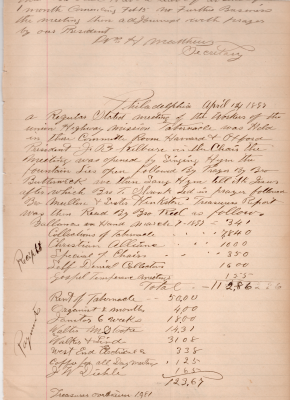 1 month Commencing Feb 15 No Further Business
the meeting then adjourned with prayer
by our President
Wm H Matthews
Secretary
Philadelphia April 14 1888
a Regular Stated meeting of the Workers of the
union Highway Mission Tabernacle was Held
in their Committee Room Harvard & Oxford
President in the Chair the
Meeting was opened by Singing Hymn the
fountain lies open followed by Prayer By Bro
Butterwick we then sang Hymn
after which Bro Led in prayer followed
Bro Mullen & Sister Treasures Report
was then Read By Bro as follows
Ballance on Hand March 1888 — 341
Receipts
Collections of Tabernacle " 7840
Christian Alliance 1000
Special of Chairs " 350
Self Denial Collection 1600
Gospel temperance meeting 155
Total — 112,86
Payments
Rent of Tabernacle — 5000
Organist 2 months 400
Janitor 6 weeks 1800
Walter M 1431
Walter & 3108
West End Electric 338
Coffee for all Day meeting 125
J W Diehl 165
123,67
Treasurer overdrawn 1081